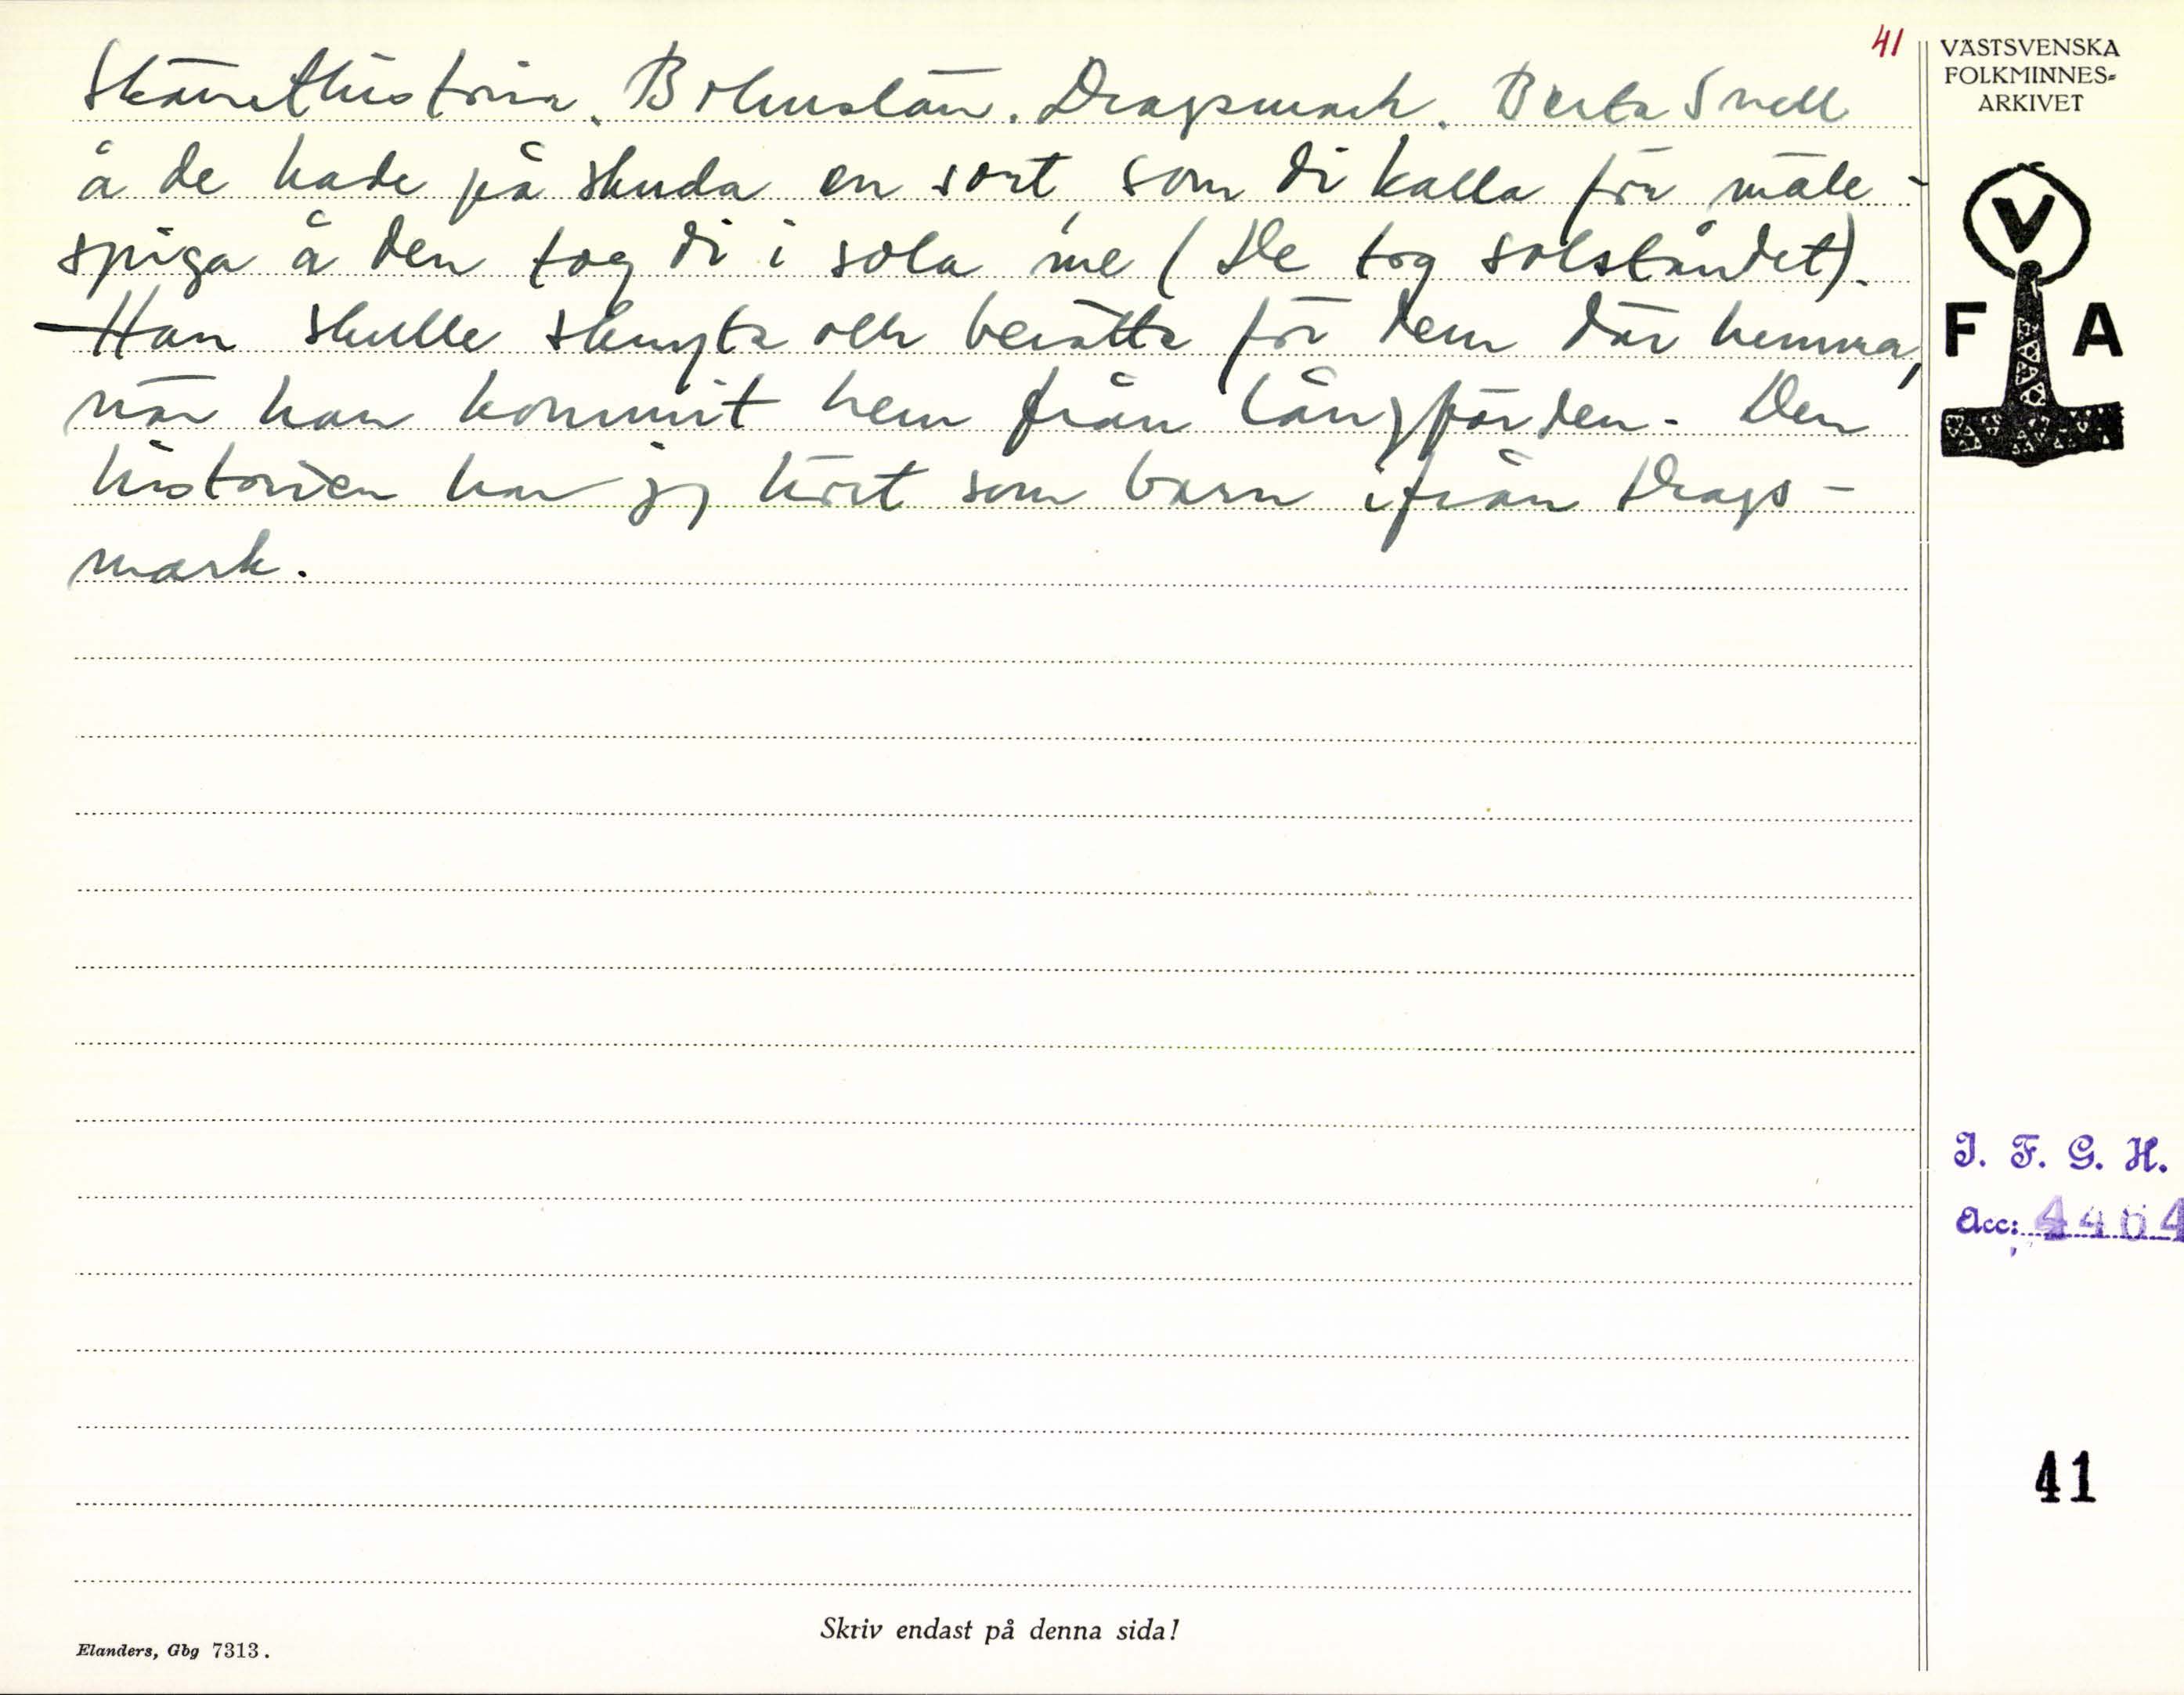 41
Skämthistoria. Bohuslän. Dragsmark. Berta Snell
å de hade på skuda en sort, som di kalla för mäle-
spiga å den tog di i sola me (De tog solståndet).
- Han skulle skryta och berätta för dem där hemma,
när han kommit hem från långfärden. Den
historien har jag hört som barn ifrån Drags-
mark.
VÄSTSVENSKA
FOLKMINNES-
ARKIVET
V
F A
I. F. G. H.
Acc: 4464
41
Skriv endast på denna sida!
Elanders, Gbg 7313.